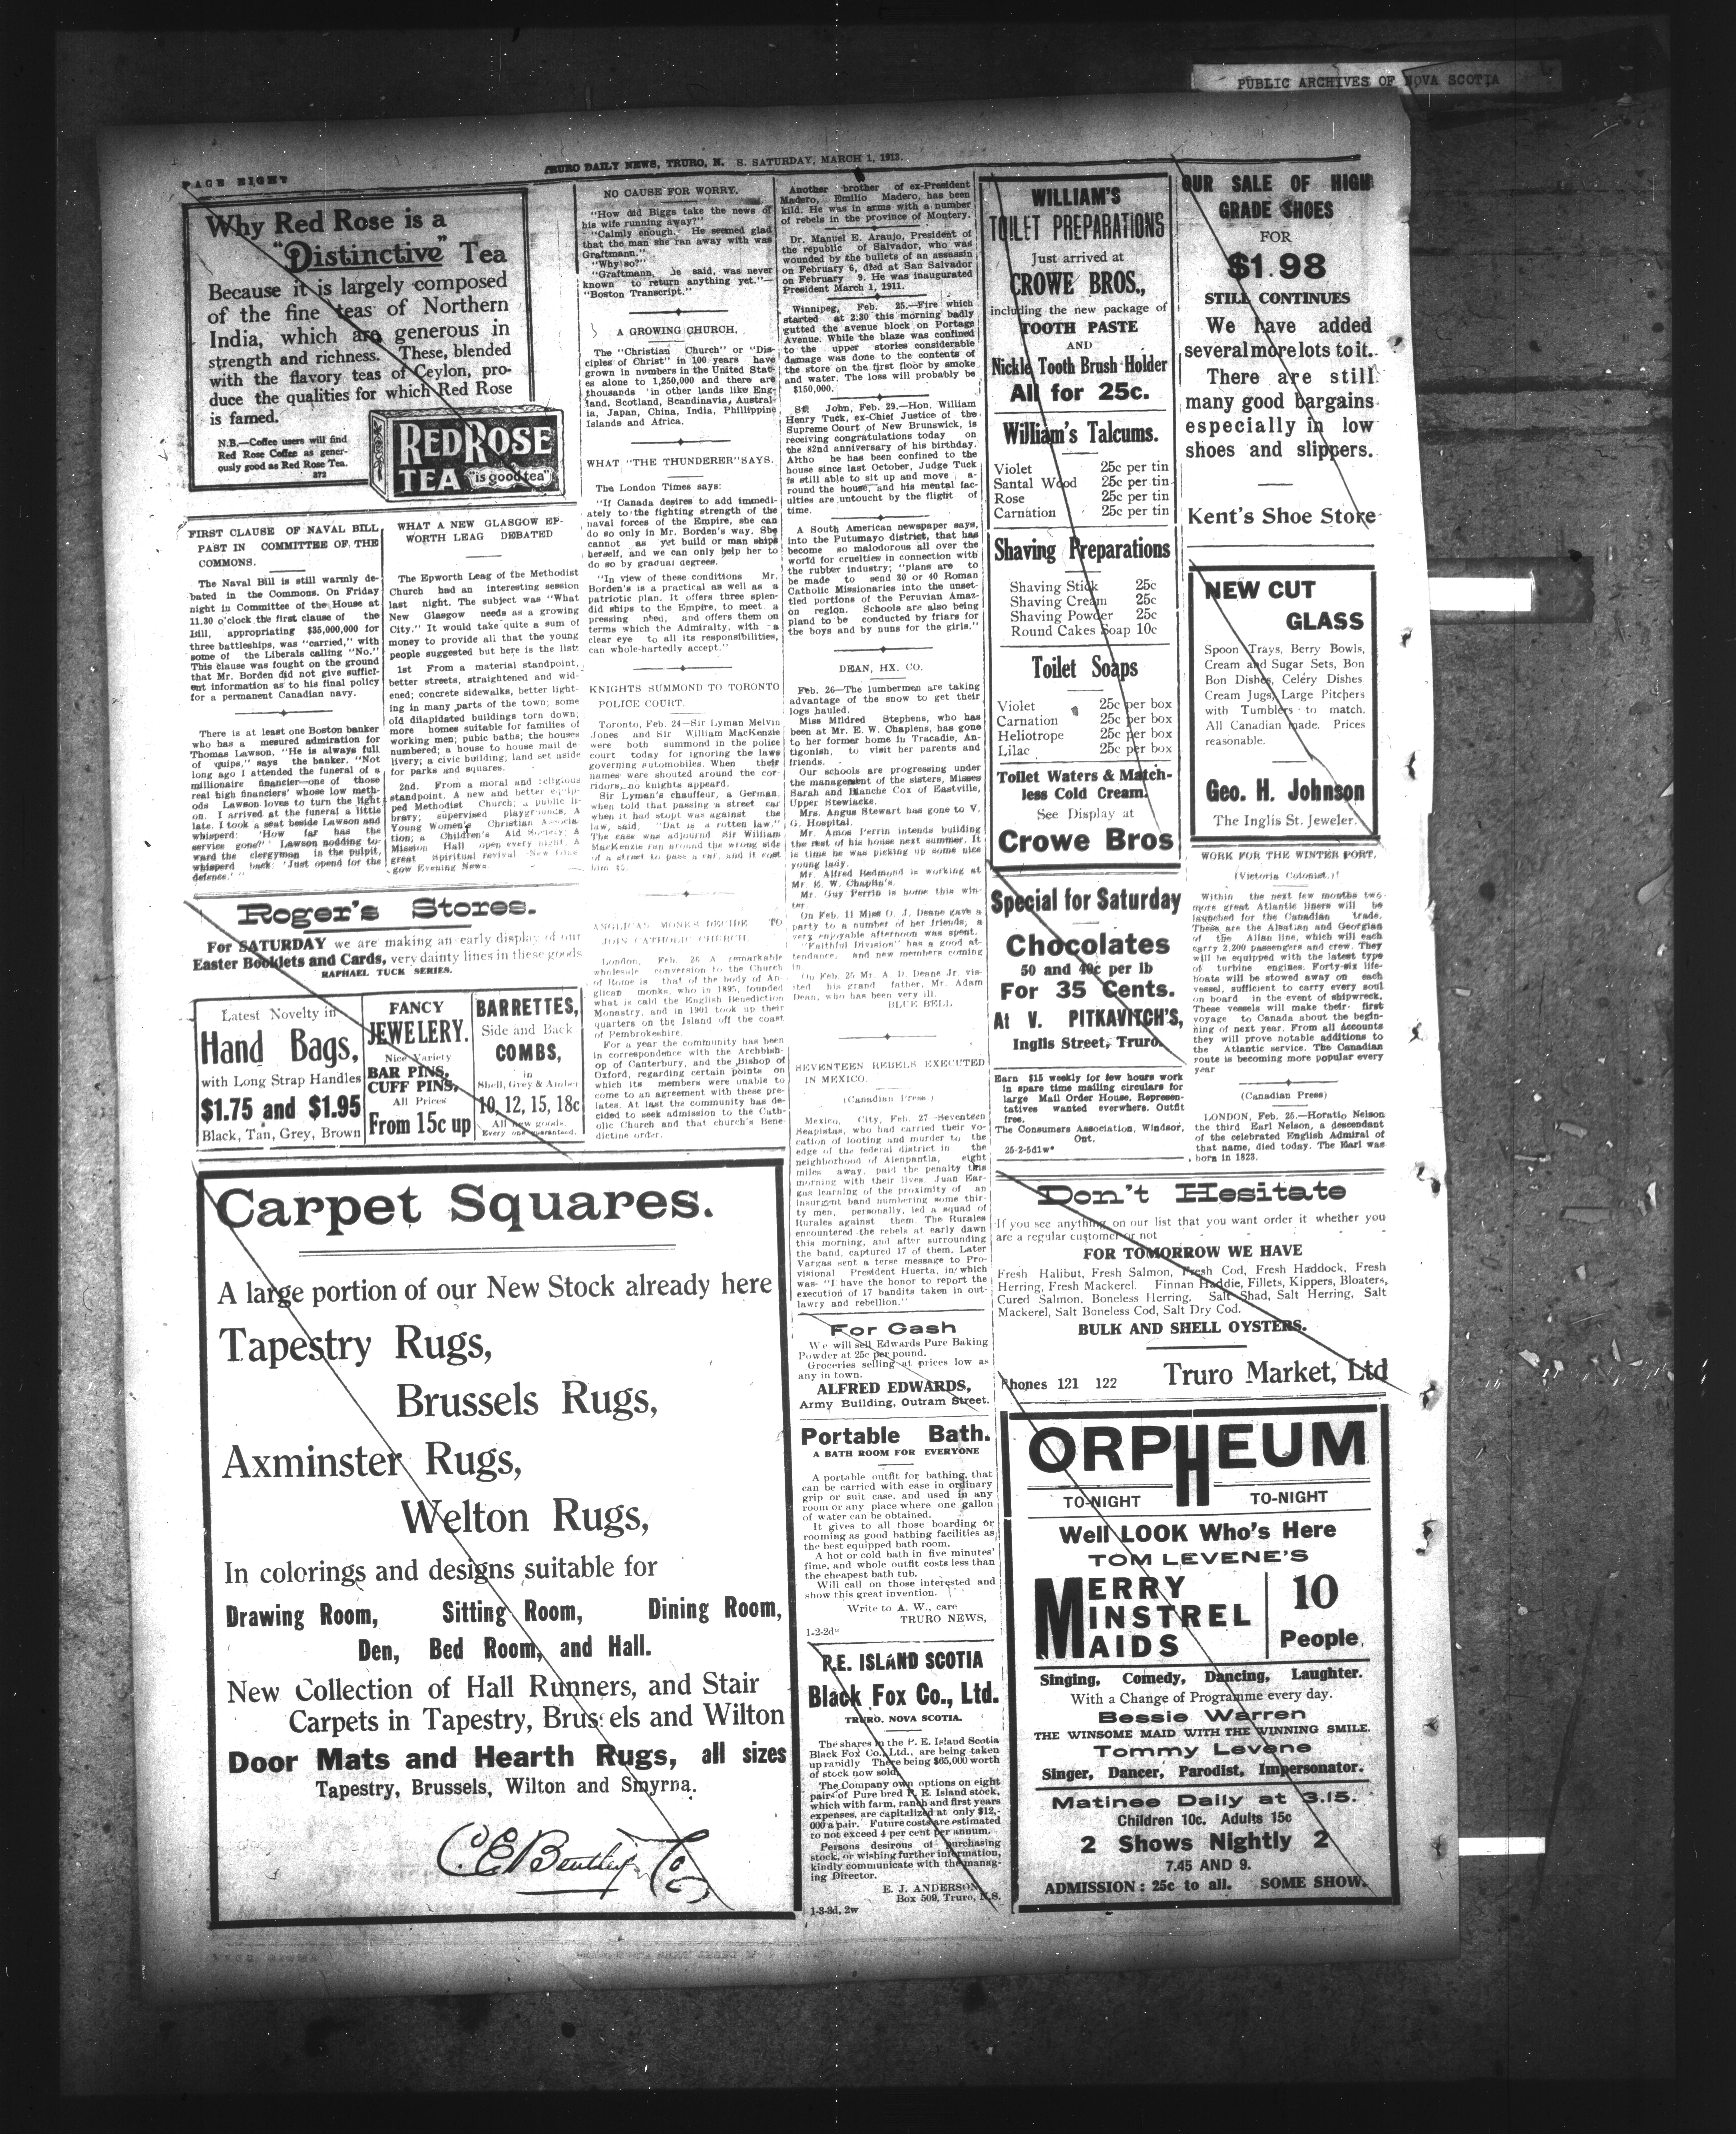 PUBLIC ARCHIVES OF NOVA SCOTIA
PAGE EIGHT
TRURO DAILY NEWS, TRURO, N. S. SATURDAY, MARCH 1, 1913.
Why Red Rose is a
"Distinctive" Tea
Because it is largely composed
of the fine teas of Northern
India, which are generous in
strength and richness. These, blended
with the flavory teas of Ceylon, pro-
duce the qualities for which Red Rose
is famed.
N.B.—Coffee users will find
Red Rose Coffee as gener-
ously good as Red Rose Tea.
372
RED ROSE
TEA "is good tea"
FIRST CLAUSE OF NAVAL BILL
PAST IN COMMITTEE OF THE
COMMONS.
The Naval Bill is still warmly de-
bated in the Commons. On Friday
night in Committee of the House at
11.30 o'clock the first clause of the
Bill, appropriating $35,000,000 for
three battleships, was "carried," with
some of the Liberals calling "No."
This clause was fought on the ground
that Mr. Borden did not give suffici-
ent information as to his final policy
for a permanent Canadian navy.
There is at least one Boston banker
who has a mesured admiration for
Thomas Lawson. "He is always full
of quips," says the banker. "Not
long ago I attended the funeral of a
millionaire financier—one of those
real high financiers' whose low meth-
ods Lawson loves to turn the light
on. I arrived at the funeral a little
late. I took a seat beside Lawson and
whisperd: 'How far has the
service gone?' Lawson nodding to-
ward the clergyman in the pulpit,
whisperd back: 'Just opend for the
defence.' "
WHAT A NEW GLASGOW EP-
WORTH LEAG DEBATED
The Epworth Leag of the Methodist
Church had an interesting session
last night. The subject was "What
New Glasgow needs as a growing
City." It would take quite a sum of
money to provide all that the young
people suggested but here is the list:
1st From a material standpoint,
better streets, straightened and wid-
ened; concrete sidewalks, better light-
ing in many parts of the town; some
old dilapidated buildings torn down;
more homes suitable for families of
working men; public baths; the houses
numbered; a house to house mail de-
livery; a civic building; land set aside
for parks and squares.
2nd. From a moral and religious
standpoint. A new and better equip-
ped Methodist Church; a public li-
brary; supervised playgrounds, A
Young Women's Christian Associa-
tion; a Children's Aid Society A
Mission Hall open every night. A
great Spiritual revival New Glas-
gow Evening News
NO CAUSE FOR WORRY.
"How did Biggs take the news of
his wife running away?"
"Calmly enough. He seemed glad
that the man she ran away with was
Graftmann."
"Why so?"
"Graftmann, he said, was never
known to return anything yet."—
"Boston Transcript."
A GROWING CHURCH.
The "Christian Church" or "Dis-
ciples of Christ" in 100 years have
grown in numbers in the United Stat-
es alone to 1,250,000 and there are
thousands in other lands like Eng-
land, Scotland, Scandinavia, Austral-
ia, Japan, China, India, Phillippine
Islands and Africa.
WHAT "THE THUNDERER" SAYS.
The London Times says:
"If Canada desires to add immedi-
ately to the fighting strength of the
naval forces of the Empire, she can
do so only in Mr. Borden's way. She
cannot as yet build or man ships
herself, and we can only help her to
do so by gradual degrees.
"In view of these conditions Mr.
Borden's is a practical as well as a
patriotic plan. It offers three splen-
did ships to the Empire, to meet a
pressing need, and offers them on
terms which the Admiralty, with a
clear eye to all its responsibilities,
can whole-hartedly accept."
KNIGHTS SUMMOND TO TORONTO
POLICE COURT.
Toronto, Feb. 24—Sir Lyman Melvin
Jones and Sir William MacKenzie
were both summond in the police
court today for ignoring the laws
governing automobiles. When their
names were shouted around the cor-
ridors no knights appeard.
Sir Lyman's chauffeur, a German,
when told that passing a street car
when it had stopt was against the
law, said, "Dat is a rotten law."
The case was adjournd Sir William
MacKenzie ran around the wrong side
of a street to pass a car, and it cost
him $5.
ANGLICAN MONKS DECIDE TO
JOIN CATHOLIC CHURCH.
London, Feb. 26 A remarkable
wholesale conversion to the Church
of Rome is that of the body of An
glican monks, who in 1895, founded
what is cald the English Benediction
Monastry, and in 1901 took up their
quarters on the Island off the coast
of Pembrokeshire.
For a year the community has been
in correspondence with the Archbish-
op of Canterbury, and the Bishop of
Oxford, regarding certain points on
which its members were unable to
come to an agreement with these pre-
lates. At last the community has de-
cided to seek admission to the Cath-
olic Church and that church's Bene-
dictine order.
Another brother of ex-President
Madero, Emilio Madero, has been
kild. He was in arms with a number
of rebels in the province of Montery.
Dr. Manuel E. Araujo, President of
the republic of Salvador, who was
wounded by the bullets of an assassin
on February 6, died at San Salvador
on February 9. He was inaugurated
President March 1, 1911.
Winnipeg, Feb. 25.—Fire which
started at 2:30 this morning badly
gutted the avenue block on Portage
Avenue. While the blaze was confined
to the upper stories considerable
damage was done to the contents of
the store on the first floor by smoke
and water. The loss will probably be
$150,000.
St. John, Feb. 29.—Hon. William
Henry Tuck, ex-Chief Justice of the
Supreme Court of New Brunswick, is
receiving congratulations today on
the 82nd anniversary of his birthday.
Altho he has been confined to the
house since last October, Judge Tuck
is still able to sit up and move a-
round the house, and his mental fac-
ulties are untoucht by the flight of
time.
A South American newspaper says,
into the Putumayo district, that has
become so malodorous all over the
world for cruelties in connection with
the rubber industry; "plans are to
be made to send 30 or 40 Roman
Catholic Missionaries into the unset-
tled portions of the Peruvian Amaz-
on region. Schools are also being
pland to be conducted by friars for
the boys and by nuns for the girls."
DEAN, HX. CO.
Feb. 26—The lumbermen are taking
advantage of the snow to get their
logs hauled.
Miss Mildred Stephens, who has
been at Mr. E. W. Chaplens, has gone
to her former home in Tracadie, An-
tigonish, to visit her parents and
friends.
Our schools are progressing under
the management of the sisters, Misses
Sarah and Blanche Cox of Eastville,
Upper Stewiacke.
Mrs. Angus Stewart has gone to V.
G. Hospital.
Mr. Amos Perrin intends building
the rest of his house next summer. It
is time he was picking up some nice
young lady.
Mr. Alfred Redmond is working at
Mr E. W. Chaplin's.
Mr. Guy Perrin is home this win-
ter.
On Feb. 11 Miss O. J. Deane gave a
party to a number of her friends, a
very enjoyable afternoon was spent.
"Faithful Division" has a good at-
tendance, and new members coming
in.
On Feb. 25 Mr. A. D. Deane Jr. vis-
ited his grand father, Mr. Adam
Dean, who has been very ill.
BLUE BELL.
SEVENTEEN REBELS EXECUTED
IN MEXICO.
(Canadian Press)
Mexico, City, Feb. 27—Seventeen
Seapistas, who had carried their vo-
cation of looting and murder to the
edge of the federal district in the
neighborhood of Alenpantia, eight
miles away, paid the penalty this
morning with their lives. Juan Ear-
gas learning of the proximity of an
insurgent band numbering some thir-
ty men, personally, led a squad of
Rurales against them. The Rurales
encountered the rebels at early dawn
this morning, and after surrounding
the band, captured 17 of them. Later
Vargas sent a terse message to Pro-
visional President Huerta, in which
was- "I have the honor to report the
execution of 17 bandits taken in out-
lawry and rebellion."
For Cash
We will sell Edwards Pure Baking
Powder at 25c per pound.
Groceries selling at prices low as
any in town.
ALFRED EDWARDS,
Army Building, Outram Street.
Portable Bath.
A BATH ROOM FOR EVERYONE
A portable outfit for bathing, that
can be carried with ease in ordinary
grip or suit case, and used in any
room or any place where one gallon
of water can be obtained.
It gives to all those boarding or
rooming as good bathing facilities as
the best equipped bath room.
A hot or cold bath in five minutes'
time, and whole outfit costs less than
the cheapest bath tub.
Will call on those interested and
show this great invention.
Write to A. W., care
TRURO NEWS,
1-2-2dw
P.E. ISLAND SCOTIA
Black Fox Co., Ltd.
TRURO, NOVA SCOTIA.
The shares in the P. E. Island Scotia
Black Fox Co., Ltd., are being taken
up rapidly There being $65,000 worth
of stock now sold.
The Company own options on eight
pairs of Pure bred P. E. Island stock,
which with farm, ranch and first years
expenses, are capitalized at only $12,-
000 a pair. Future costs are estimated
to not exceed 4 per cent per annum.
Persons desirous of purchasing
stock, or wishing further information,
kindly communicate with the manag-
ing Director.
E. J. ANDERSON,
Box 509, Truro, N.S.
1-3-3d, 2w
WILLIAM'S
TOILET PREPARATIONS
Just arrived at
CROWE BROS.,
including the new package of
TOOTH PASTE
AND
Nickle Tooth Brush Holder
All for 25c.
William's Talcums.
Violet 25c per tin
Santal Wood 25c per tin
Rose 25c per tin
Carnation 25c per tin
Shaving Preparations
Shaving Stick 25c
Shaving Cream 25c
Shaving Powder 25c
Round Cakes Soap 10c
Toilet Soaps
Violet 25c per box
Carnation 25c per box
Heliotrope 25c per box
Lilac 25c per box
Toilet Waters & Match-
less Cold Cream.
See Display at
Crowe Bros
Special for Saturday
Chocolates
50 and 40c per lb
For 35 Cents.
At V. PITKAVITCH'S,
Inglis Street, Truro.
Earn $15 weekly for few hours work
in spare time mailing circulars for
large Mail Order House. Represen-
tatives wanted everwhere. Outfit
free.
The Consumers Association, Windsor,
Ont.
25-2-5d1w*
OUR SALE OF HIGH
GRADE SHOES
FOR
$1.98
STILL CONTINUES
We have added
several more lots to it.
There are still
many good bargains
especially in low
shoes and slippers.
Kent's Shoe Store
NEW CUT
GLASS
Spoon Trays, Berry Bowls,
Cream and Sugar Sets, Bon
Bon Dishes, Celery Dishes
Cream Jugs, Large Pitchers
with Tumblers to match.
All Canadian made. Prices
reasonable.
Geo. H. Johnson
The Inglis St. Jeweler.
WORK FOR THE WINTER PORT.
(Victoria Colonist.)
Within the next few months two
more great Atlantic liners will be
launched for the Canadian trade.
These are the Alsatian and Georgian
of the Allan line, which will each
carry 2,200 passengers and crew. They
will be equipped with the latest type
of turbine engines. Forty-six life-
boats will be stowed away on each
vessel, sufficient to carry every soul
on board in the event of shipwreck.
These vessels will make their first
voyage to Canada about the begin-
ning of next year. From all accounts
they will prove notable additions to
the Atlantic service. The Canadian
route is becoming more popular every
year
(Canadian Press)
LONDON, Feb. 25.—Horatio Nelson
the third Earl Nelson, a descendant
of the celebrated English Admiral of
that name, died today. The Earl was
born in 1823.
Roger's Stores.
For SATURDAY we are making an early display of our
Easter Booklets and Cards, very dainty lines in these goods
RAPHAEL TUCK SERIES.
Latest Novelty in
Hand Bags,
with Long Strap Handles
$1.75 and $1.95
Black, Tan, Grey, Brown
FANCY
JEWELERY.
Nice Variety
BAR PINS,
CUFF PINS,
All Prices
From 15c up
BARRETTES,
Side and Back
COMBS,
in
Shell, Grey & Amber
10, 12, 15, 18c
All new goods.
Every one guaranteed.
Carpet Squares.
A large portion of our New Stock already here
Tapestry Rugs,
Brussels Rugs,
Axminster Rugs,
Welton Rugs,
In colorings and designs suitable for
Drawing Room, Sitting Room, Dining Room,
Den, Bed Room, and Hall.
New Collection of Hall Runners, and Stair
Carpets in Tapestry, Brussels and Wilton
Door Mats and Hearth Rugs, all sizes
Tapestry, Brussels, Wilton and Smyrna.
C. E. Bentley Co
Don't Hesitate
If you see anything on our list that you want order it whether you
are a regular customer or not
FOR TOMORROW WE HAVE
Fresh Halibut, Fresh Salmon, Fresh Cod, Fresh Haddock, Fresh
Herring, Fresh Mackerel. Finnan Haddie, Fillets, Kippers, Bloaters,
Cured Salmon, Boneless Herring. Salt Shad, Salt Herring, Salt
Mackerel, Salt Boneless Cod, Salt Dry Cod.
BULK AND SHELL OYSTERS.
Phones 121 122 Truro Market, Ltd
ORPHEUM
TO-NIGHT TO-NIGHT
Well LOOK Who's Here
TOM LEVENE'S
MERRY
MINSTREL
MAIDS
10
People.
Singing, Comedy, Dancing, Laughter.
With a Change of Programme every day.
Bessie Warren
THE WINSOME MAID WITH THE WINNING SMILE.
Tommy Levene
Singer, Dancer, Parodist, Impersonator.
Matinee Daily at 3.15.
Children 10c. Adults 15c
2 Shows Nightly 2
7.45 AND 9.
ADMISSION: 25c to all. SOME SHOW.